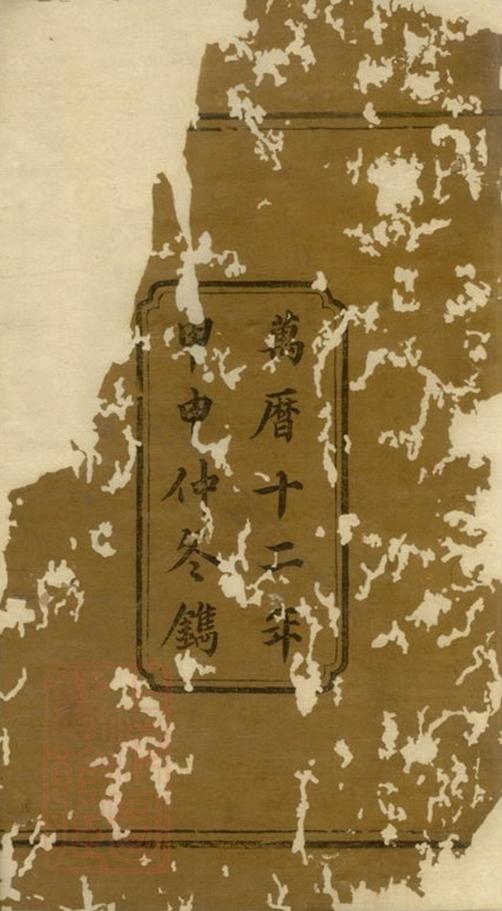 萬曆十二年
甲申仲冬鐫